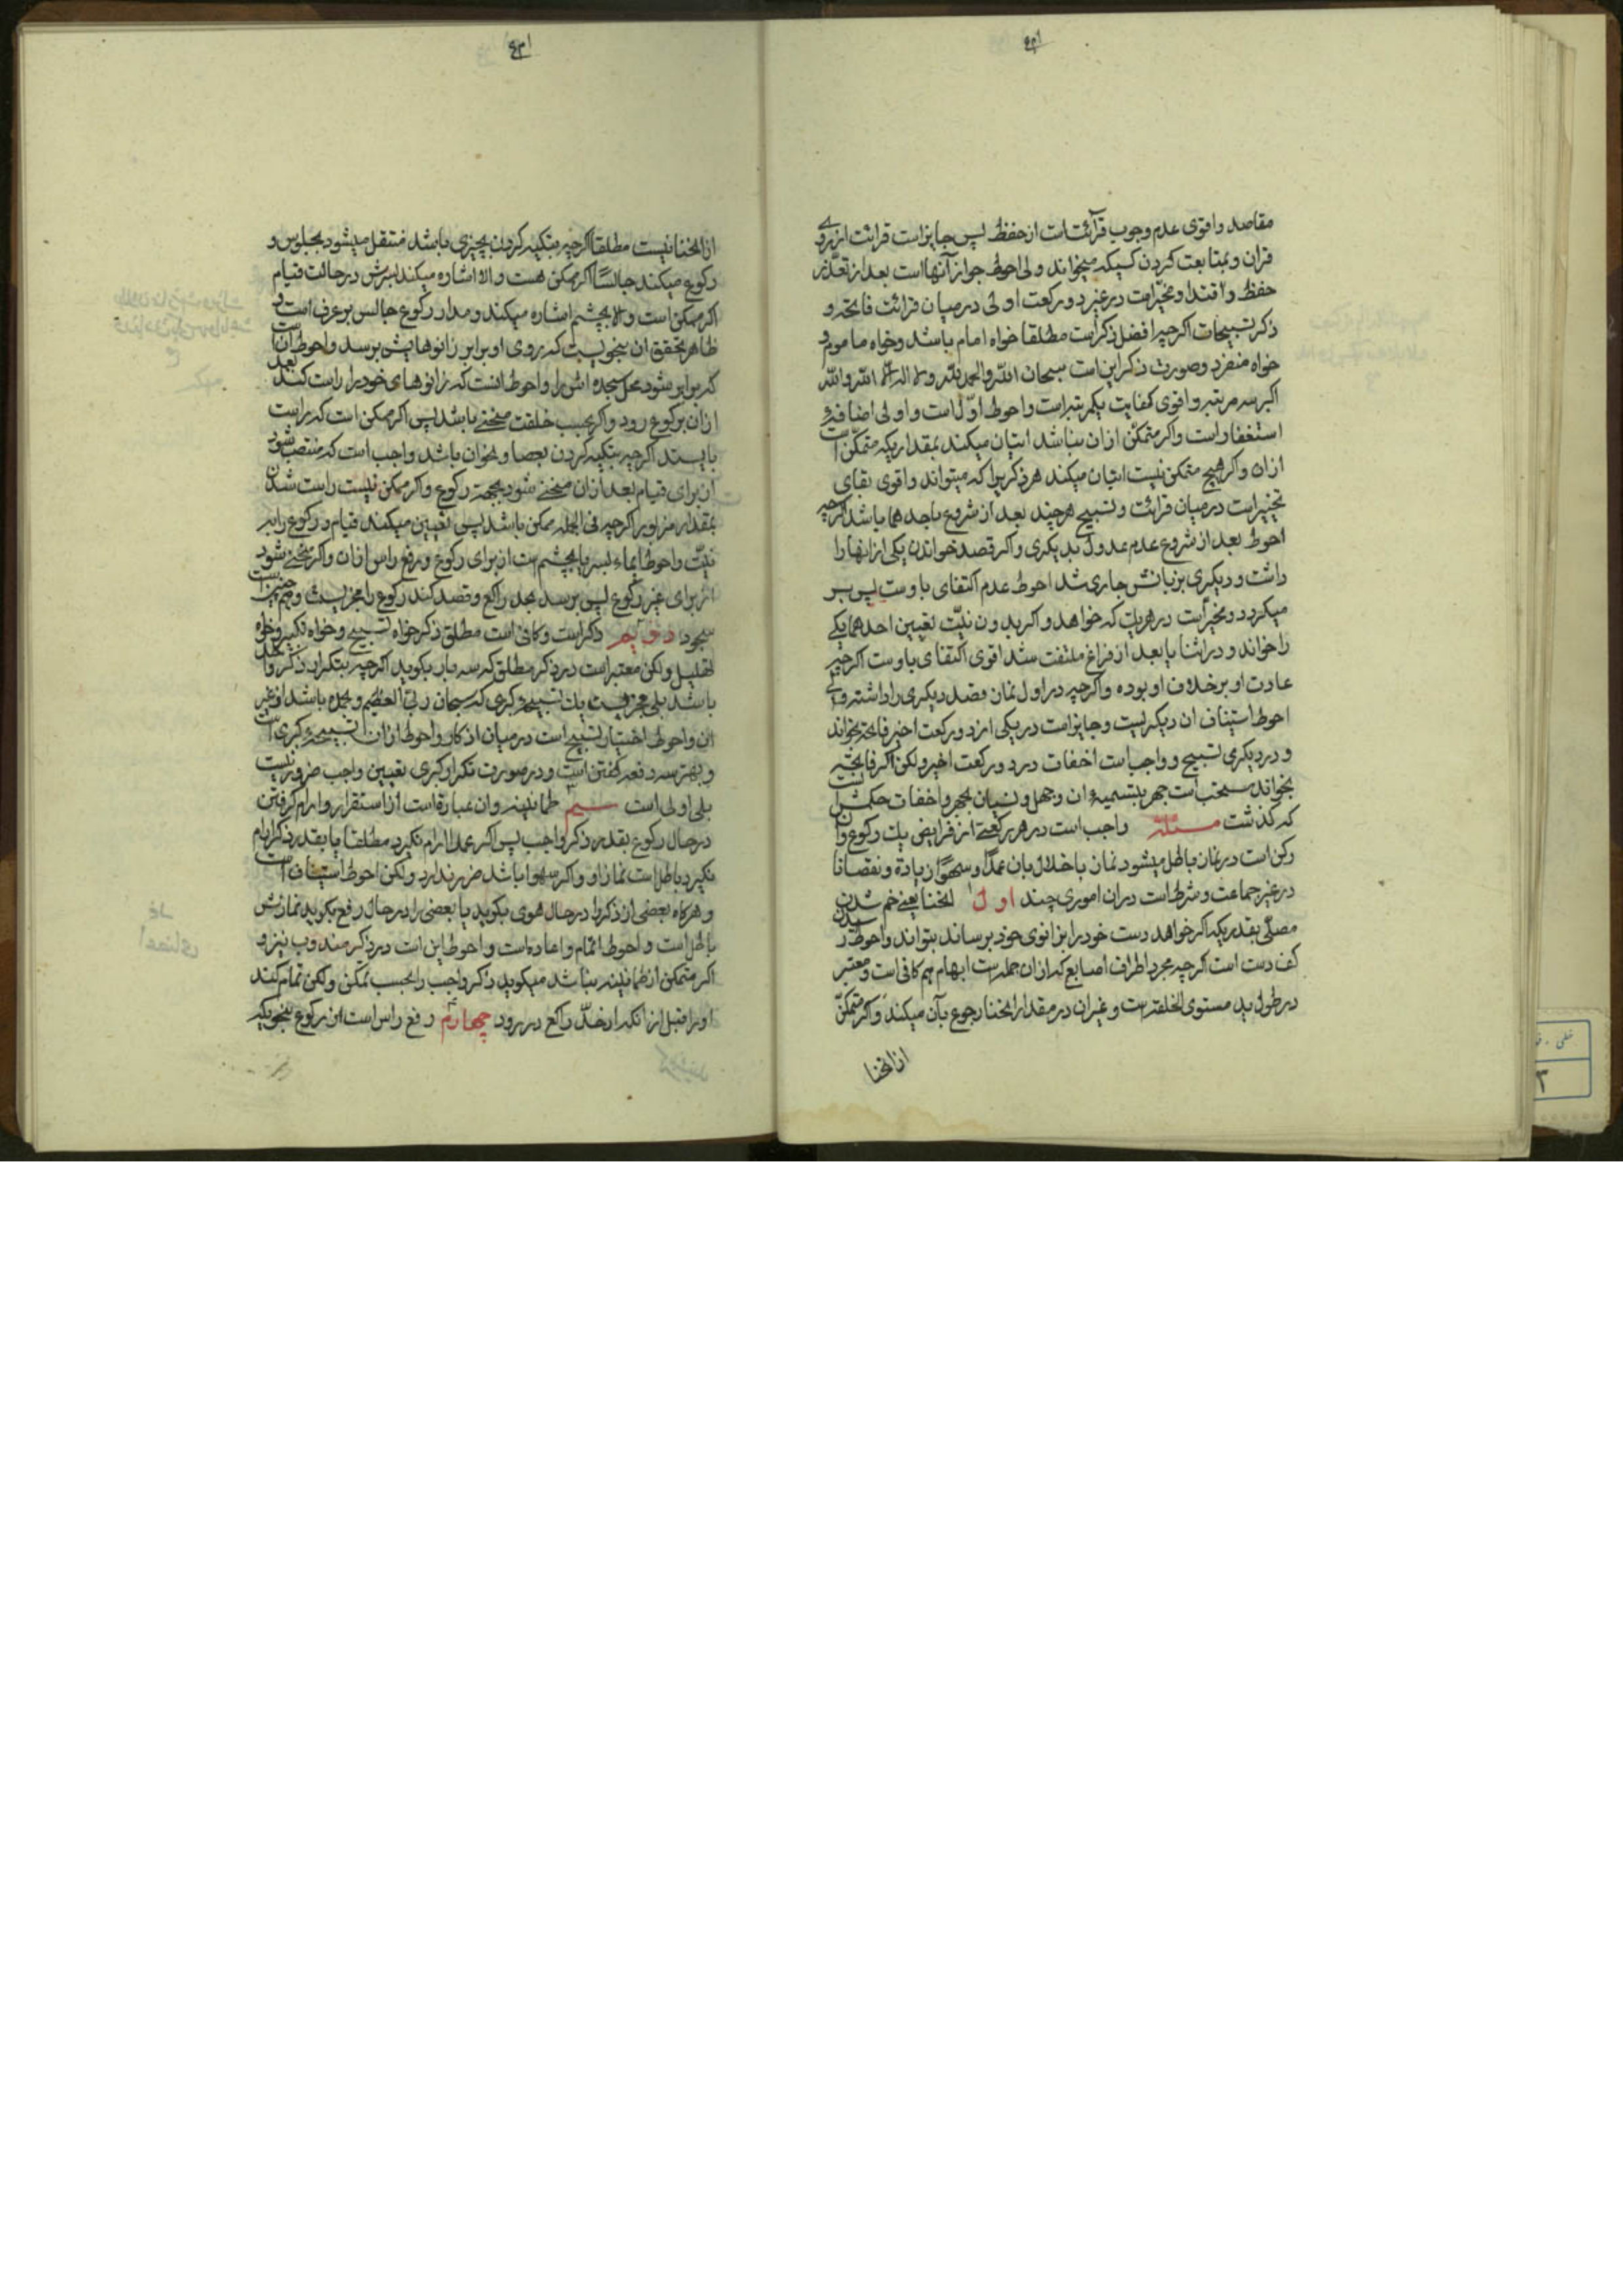 مقاصد واقوی عدم وجوب قرآئتست از حفظ پس جایز است قرائت از روی
قران و بمتابعت کردن کسیکه میخواند ولی احوط جواز آنها است بعد از تعذر
حفظ و اقتدا و مخیّر است در غیر دو رکعت اولی در میان قرائت فاتحه و
ذکر تسبیحات اکرچه افضل ذکر است مطلقا خواه امام باشد و خواه ماموم و
خواه منفرد و صورت ذکر این است سبحان الله والحمد لله ولا اله الا الله والله
اکبر سه مرتبه واقوی کفایت یکمرتبه است واحوط اوّل است واولی اضافهٔ
استغفار است واکر متمکن ازان نباشد اتیان میکند بمقداریکه متمکّن است
ازان واکر هیچ متمکن نیست اتیان میکند هر ذکریرا که میتواند واقوی بقای
تخییر است در میان قرائت و تسبیح هرچند بعد از شروع باحدهما باشد اکرچه
احوط بعد از شروع عدم عدول بدیکری واکر قصد خواندن یکی از اینها را
داشت و دیکری بزبانش جاری شد احوط عدم اکتفای باوست پس بر
میکردد و مخیر است در هریک که خواهد واکر بدون نیّت تعیین احدهما یکی
را خواند و در اثنا یا بعد از فراغ ملتفت شد اقوی اکتفای باوست اکرچه
عادت او برخلاف او بوده واکرچه در اول نماز قصد دیکری را داشته ولی
احوط استیناف ان دیکریست وجایز است در یکی از دو رکعت اخیر فاتحه بخواند
و در دیکری تسبیح و واجب است اخفات در دو رکعت اخیر ولکن اکر فاتحه
بخواند مستحب است جهر ببسمیهٔ ان وجهل و نسیان بجهر واخفات حکمش انست
که کذشت مسئلة واجب است در هر رکعتی از فرایض یک رکوع وان
رکن است در نماز باطل میشود نماز باخلال بان عمدًا وسهوًا زیادة ونقصانا
در غیر جماعت و شرط است دران اموری چند اول انحنا یعنی خم شدن
مصلّی بقدریکه اکر خواهد دست خود را بزانوی خود برساند بتواند واحوط رسیدن
کف دست است اکرچه مجرد اطراف اصابع که ازان جمله است ابهام هم کافی است ومعتبر
در طول ید مستوی الخلقه است وغیر ان در مقدار انحنا رجوع بآن میکند و اکر متمکّن
از انحنا
از انحنا نیست مطلقا اکرچه بتکیه کردن بچیزی باشد منتقل میشود بجلوس و
رکوع میکند جالسًا اکر ممکن هست والا اشاره میکند بسرش در حالت قیام
اکر ممکن است والا بچشم اشاره میکند ومدار رکوع جالس بر عرف است و
ظاهر تحقق ان بنحویست که روی او برابر زانوهایش برسد واحوط آن است
که برابر شود محل سجده اش را واحوط انست که زانوهای خود را راست کند بعد
ازان برکوع رود واکر بحسب خلقت منحنی باشد پس اکر ممکن است که راست
بایستد اکرچه بتکیه کردن بعصا ونحوان باشد واجب است که منتصب شود
از برای قیام بعد ازان منحنی شود بجهة رکوع واکر ممکن نیست راست شدن
بمقدار مزبور اکرچه فی الجمله ممکن باشد پس تعیین میکند قیام و رکوع را به
نیّت واحوط ایماء بسر یا بچشم است از برای رکوع و رفع راس ازان واکر منحنی شود
از برای غیر رکوع پس برسد بحد راکع وقصد کند رکوع را مجزی نیست وهم چنین است
سجود دویم ذکر است وکافی است مطلق ذکر خواه تسبیح وخواه تکبیر وخواه
تهلیل ولکن معتبر است در ذکر مطلق که سه بار بکوید اکرچه بتکرار ذکر واحد
باشد بلی مجزیست یک تسبیحهٔ کبری که سبحان ربی العظیم وبحمده باشد از غیر
ان واحوط اختیار تسبیح است در میان اذکار واحوط ازان تسبیحهٔ کبری است
وبهتر سه دفعه کفتن است و در صورت تکرار کبری تعیین واجب ضرور نیست
بلی اولی است سیم طمانینه وان عبارة است از استقرار وارام کرفتن
در حال رکوع بقدر ذکر واجب پس اکر عمدا ارام نکیرد مطلقا یا بقدر ذکر ارام
نکیرد باطل است نماز او واکر سهوا باشد ضرر ندارد ولکن احوط استیناف است
وهرکاه بعضی از ذکر را در حال هوی بکوید یا بعضی را در حال رفع بکوید نمازش
باطل است واحوط اتمام واعاده است واحوط این است در ذکر مندوب نیز و
اکر متمکن از طمانینه نباشد میکوید ذکر واجب را بحسب تمکن ولکن تمام کند
او را قبل از انکه از حدّ راکع در رود چهارم رفع راس است از رکوع بنحویکه